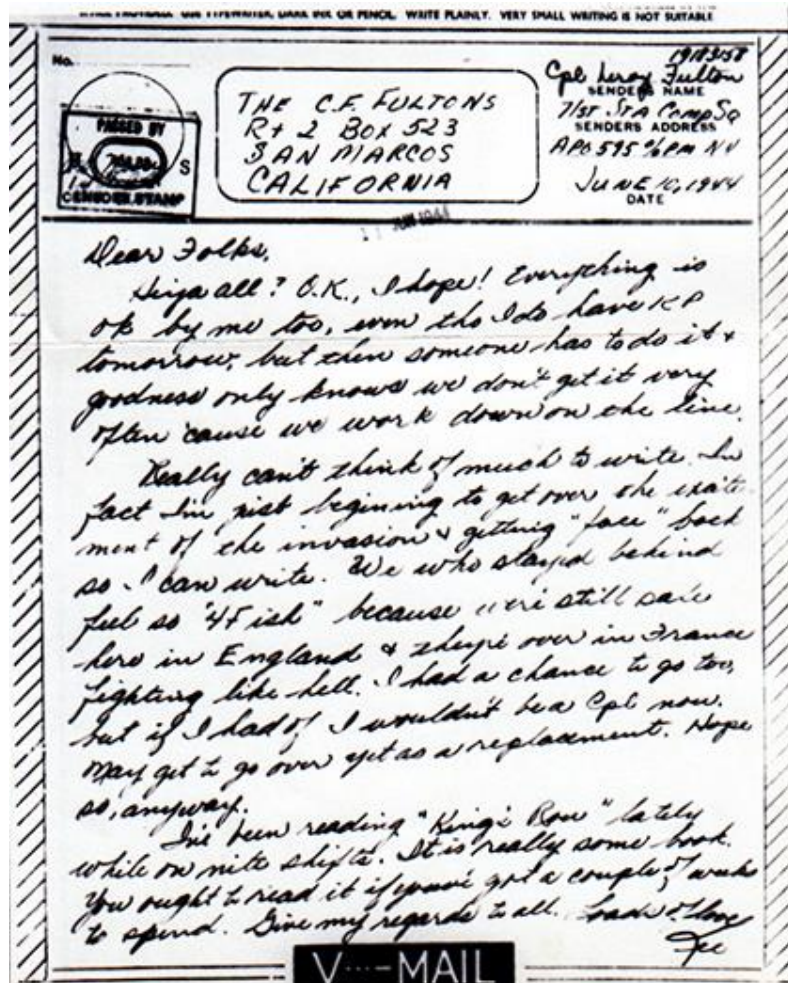 USE TYPEWRITER, DARK INK OR PENCIL. WRITE PLAINLY. VERY SMALL WRITING IS NOT SUITABLE.
No.
PASSED BY
S
CENSOR STAMP
THE C.F. FULTONS
Rt 2 Box 523
SAN MARCOS
CALIFORNIA
19183158
Cpl Leroy Fulton
SENDER'S NAME
71st Sta Comp Sq
SENDERS ADDRESS
APO 595 % PM NY
JUNE 10, 1944
DATE
JUN 1944
Dear Folks,
Hiya all? O.K., I hope! Everything is
ok by me too, even tho I do have KP
tomorrow, but then someone has to do it &
goodness only knows we don't get it very
often 'cause we work down on the line.
Really can't think of much to write. In
fact I'm just begining to get over the excite-
ment of the invasion & getting "face" back
so I can write. We who stayed behind
feel so "4F ish" because we're still safe
here in England & they're over in France
fighting like hell. I had a chance to go too,
but if I had of I wouldn't be a Cpl now.
May get to go over yet as a replacement. Hope
so, anyway.
I've been reading "King's Row" lately
while on nite shifts. It is really some book.
You ought to read it if you've got a couple of weeks
to spend. Give my regards to all. Loads of love
Lee
V···—MAIL